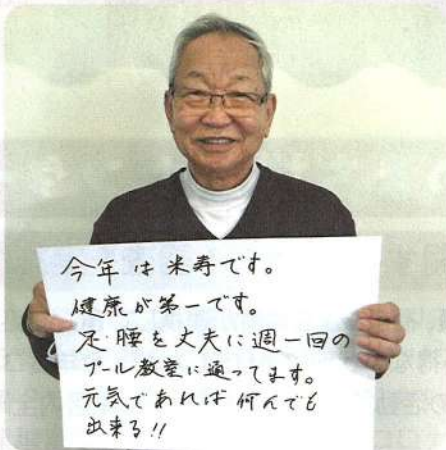 今年は米寿です。
健康が第一です。
足・腰を丈夫に週一回の
プール教室に通ってます。
元気であれば何んでも
出来る!!